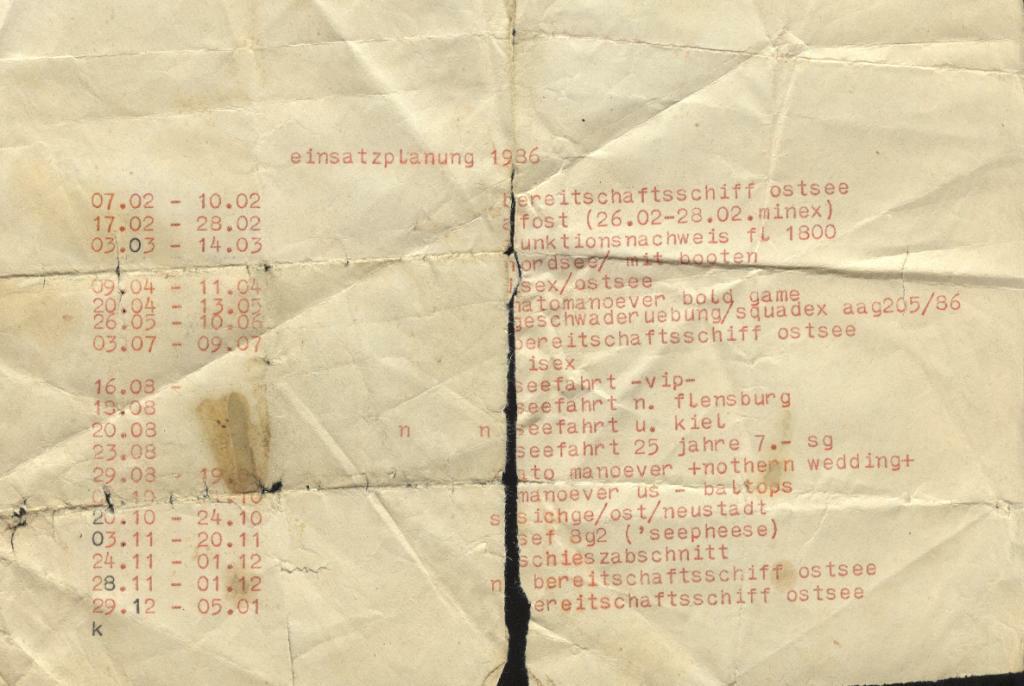 einsatzplanung 1986
07.02 - 10.02 bereitschaftsschiff ostsee
17.02 - 28.02 afost (26.02-28.02.minex)
03.03 - 14.03 funktionsnachweis fl 1800
nordsee/ mit booten
09.04 - 11.04 isex/ostsee
20.04 - 13.05 natomanoever bold game
26.05 - 10.06 geschwaderuebung/squadex aag205/86
03.07 - 09.07 bereitschaftsschiff ostsee
isex
16.08 - seefahrt -vip-
18.08 seefahrt n. flensburg
20.08 n n seefahrt u. kiel
23.08 seefahrt 25 jahre 7.- sg
29.08 - 19. nato manoever +nothern wedding+
manoever us - baltops
20.10 - 24.10 s sichge/ost/neustadt
03.11 - 20.11 sef 8g2 ('seepheese)
24.11 - 01.12 schieszabschnitt
28.11 - 01.12 n bereitschaftsschiff ostsee
29.12 - 05.01 bereitschaftsschiff ostsee
k